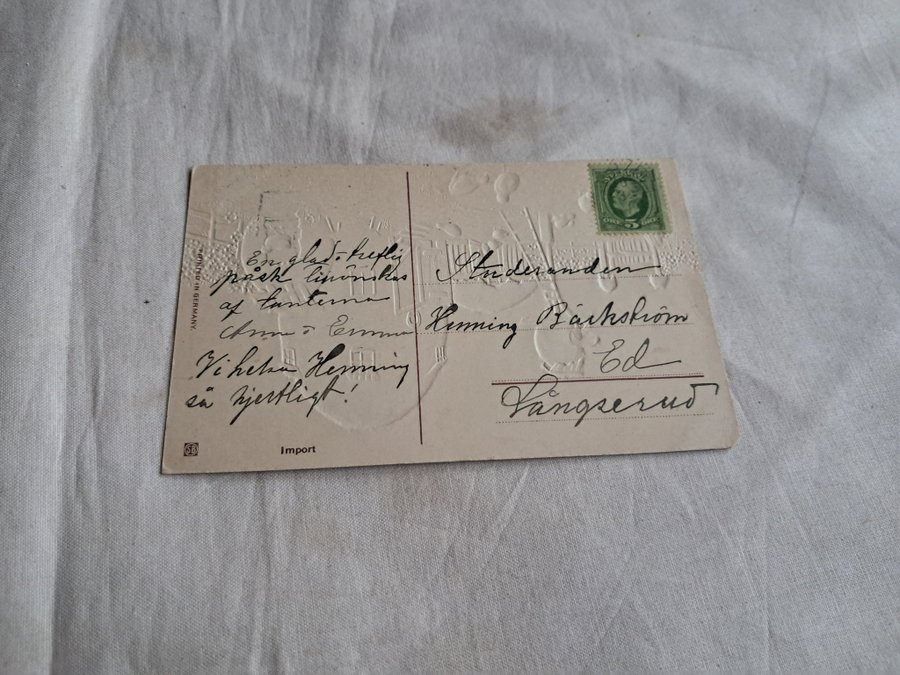 En glad o treflig
påsk tillönskas
af tanterna
Anna o Emma
Vi helsa Henning
så hjertligt!
Studeranden
Henning Bäckström
Ed
Långserud
SVERIGE
ÖRE 5 ÖRE
PRINTED IN GERMANY
SB
Import